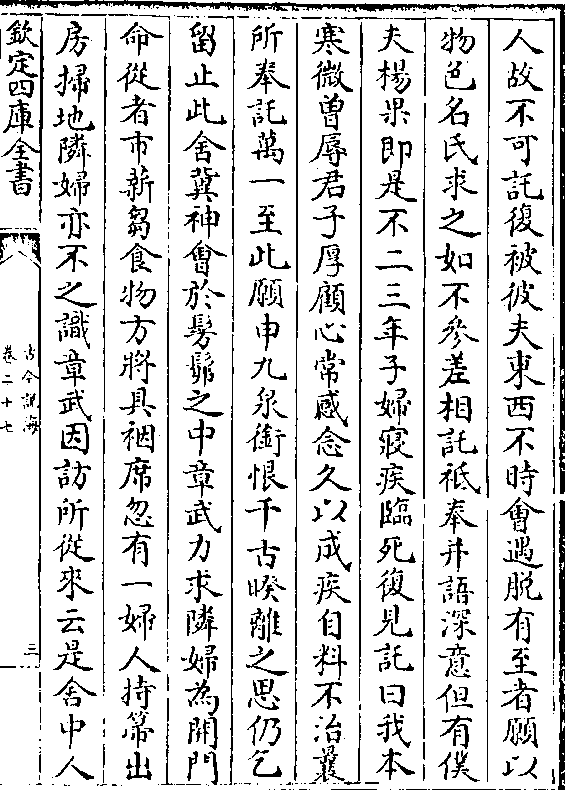 人故不可託復被彼夫東西不時會遇脱有至者願以
物色名氏求之如不參差相託祗奉并語深意但有僕
夫楊果即是不二三年子婦寢疾臨死復見託曰我本
寒微曾辱君子厚顧心常感念久以成疾自料不治曩
所奉託萬一至此願申九泉銜恨千古暌離之思仍乞
留止此舍冀神會於髣髴之中章武力求隣婦為開門
命從者市薪芻食物方將具裀席忽有一婦人持箒出
房掃地隣婦亦不之識章武因訪所從來云是舍中人
欽定四庫全書
古今說海
卷二十七
三